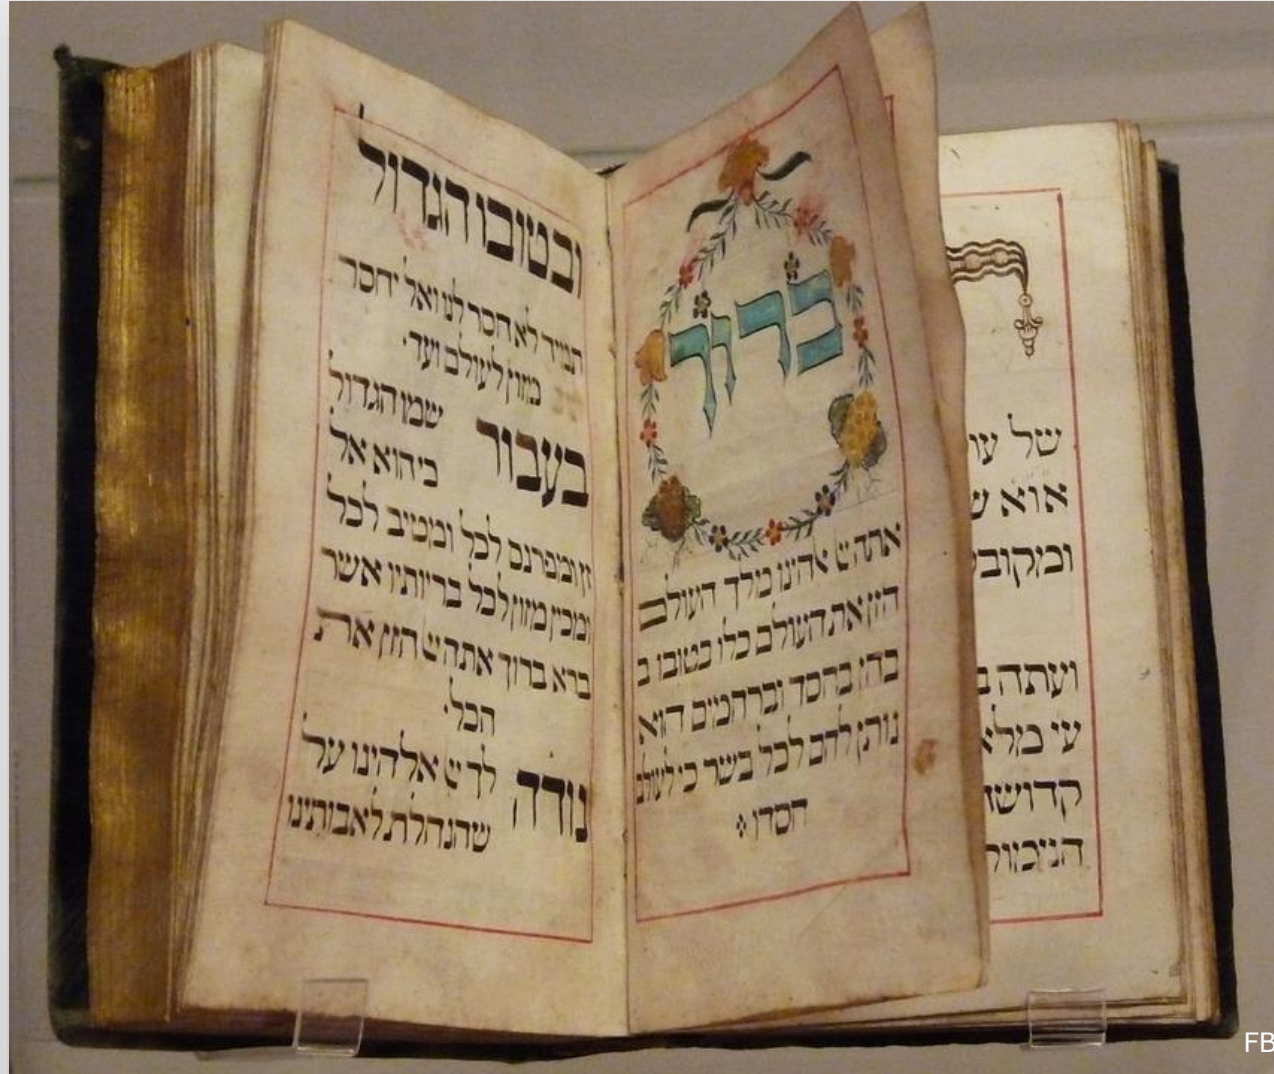 של
ועתה
ברוך
אתה יי אלהינו מלך העולם
הזן את העולם כלו בטובו ב
בחן בחסד וברחמים הוא
נותן לחם לכל בשר כי לעולם
חסדו
ובטובו הגדול
תמיד לא חסר לנו ואל יחסר
מזון לעולם ועד.
בעבור שמו הגדול
כי הוא אל
זן ומפרנס לכל ומטיב לכל
ומכין מזון לכל בריותיו אשר
ברא ברוך אתה יי הזן את
הכל.
נודה לך יי אלהינו על
שהנחלת לאבותינו
FB